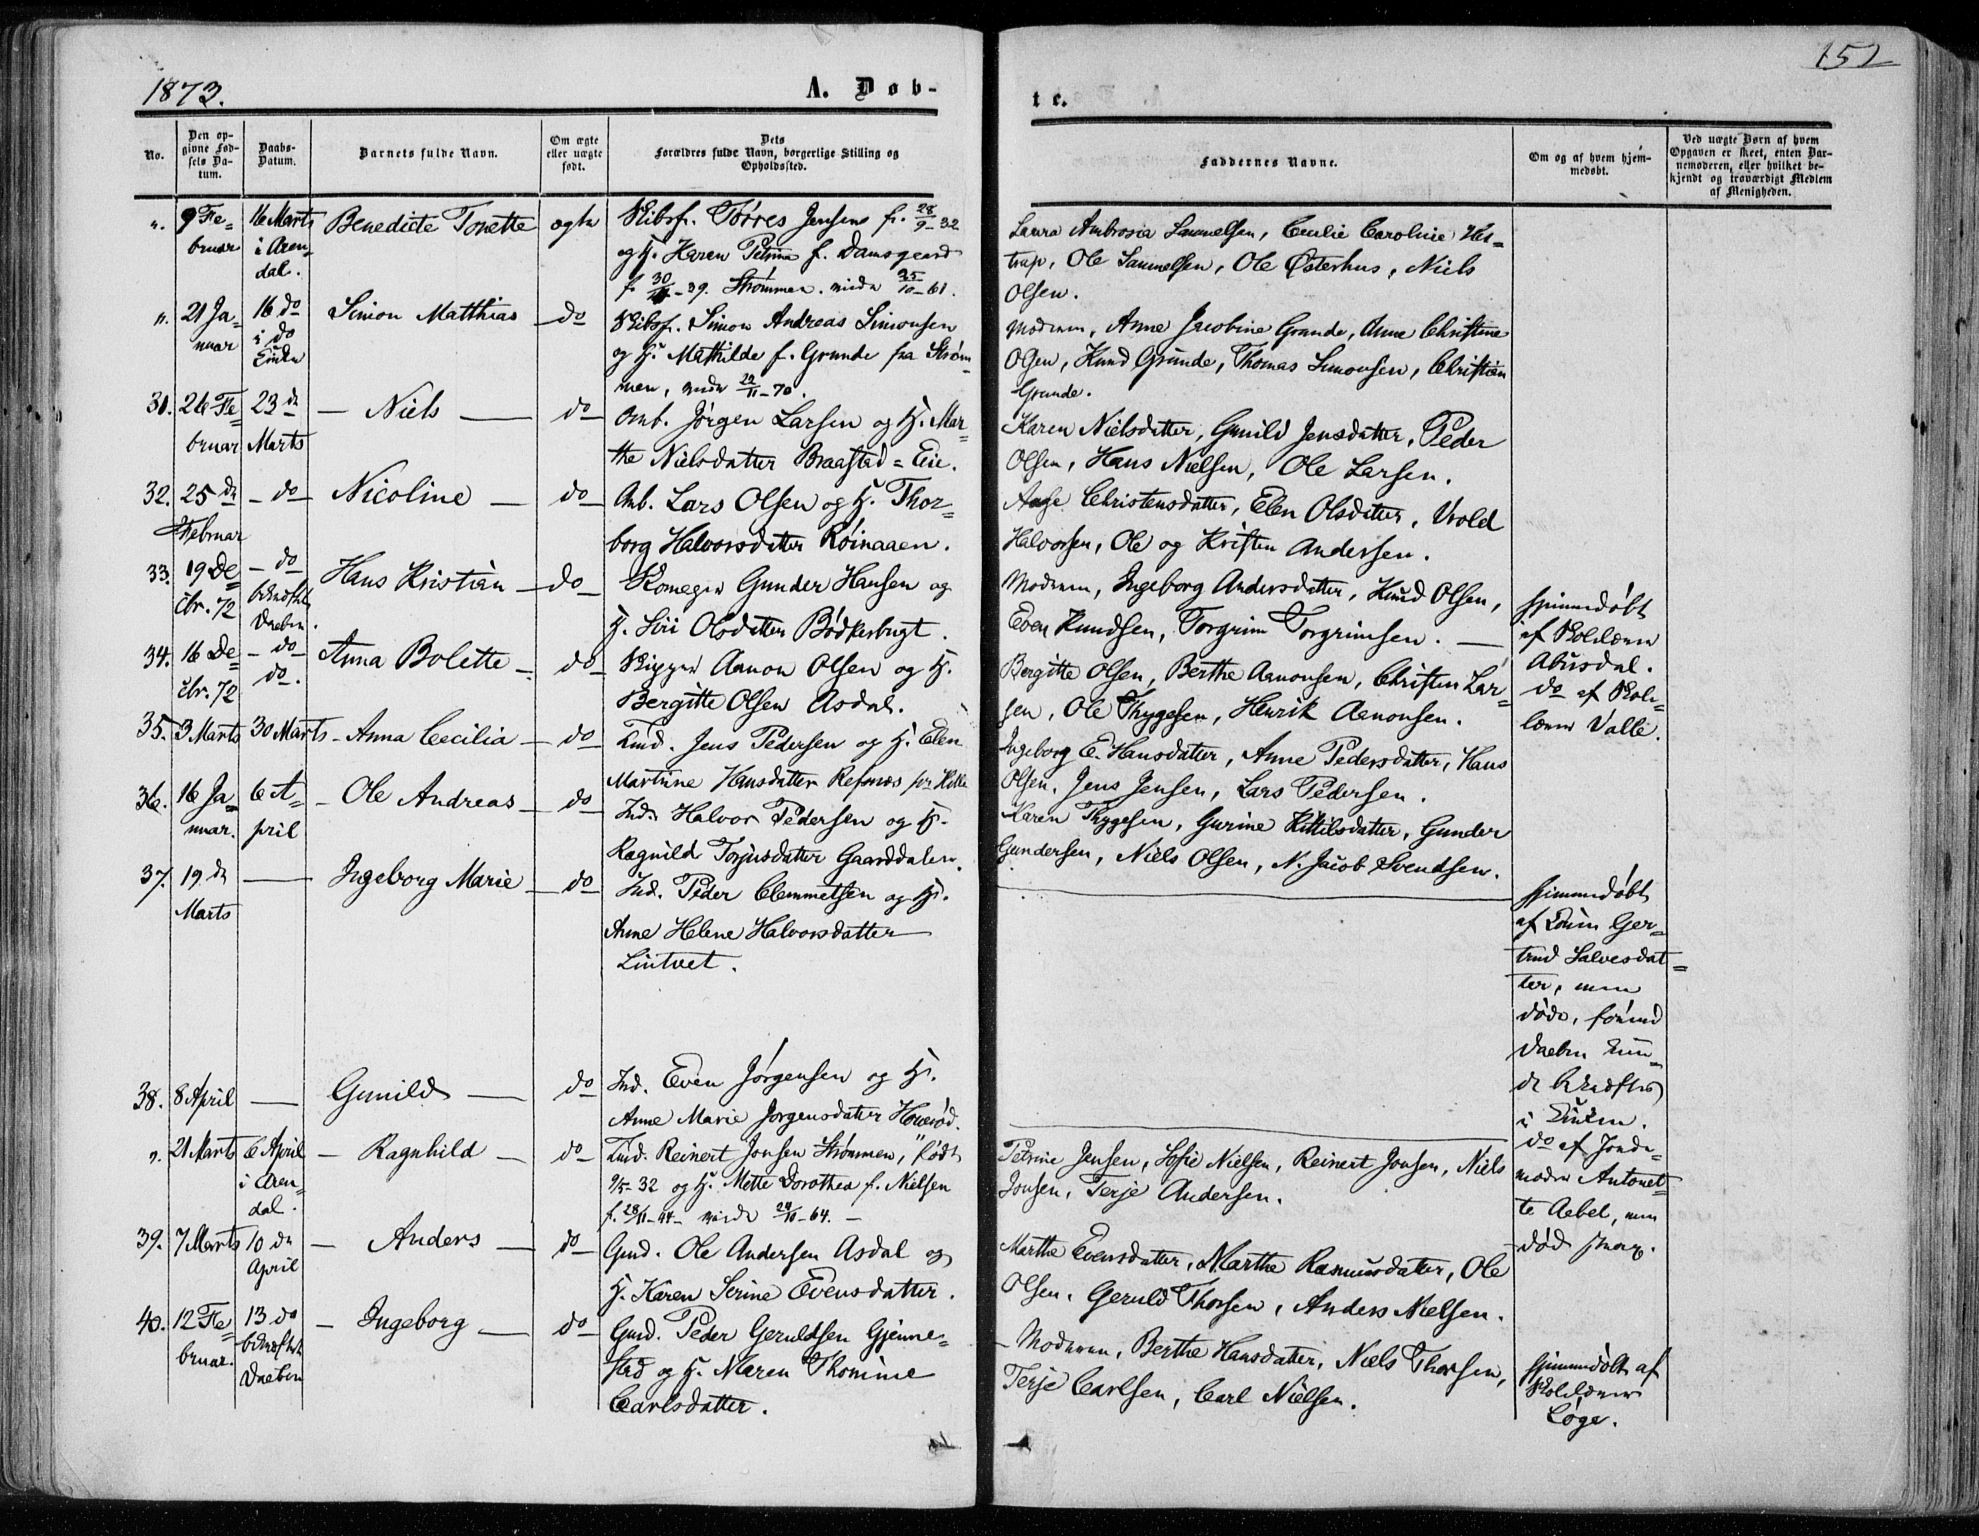 1873.
A. Døb-
te.
152
No.
Den op-
givne Fød-
sels Da-
tum.
Daabs-
Datum.
Barnets fulde Navn.
Om ægte
eller uægte
født.
Dets
Forældres fulde Navn, borgerlige Stilling og
Opholdssted.
Faddernes Navne.
Om og af hvem hjem-
medøbt.
Ved uægte Børn af hvem
Opgaven er skeet, enten Bar-
nemoderen, eller hvilket be-
kjendt og troværdigt Medlem
af Menigheden.
". 9 Fe-
bruar
16 Marts
i Aren-
dal.
Benedicte Tonette
ægte
Skibsf. Tørres Jensen f. 28/9-32
og H. Karen Petrine f. Damsgaard
f. 30/11-39. Strømmen. viede 25/10-61.
Laura Ambrosia Samuelsen, Cecilie Caroline
Ole Samuelsen, Ole Østerhus, Niels
Olsen.
". 21 Ja-
nuar
16 do
i do
Simon Matthias
do
Skibsf. Simon Andreas Simonsen
og H. Mathilde f. Grunde fra Strøm-
men, viede 22/11-70.
Moderen, Anne Jacobine Grunde, Anne Christine
Olsen, Knud Grunde, Thomas Simonsen, Christian
Grunde.
31. 26 Fe-
bruar
23 de
Marts
- Niels -
do
Arb. Jørgen Larsen og H. Mar-
the Nielsdatter Braastad-Eie.
Karen Nielsdatter, Gunild Jensdatter, Peder
Olsen, Hans Nielsen, Ole Larsen.
32. 25 de
Februar
- do -
Nicoline -
do
Arb. Lars Olsen og H. Thor-
borg Halvorsdatter Røinaaen.
Aage Christensdatter, Elen Olsdatter, Vrold
Halvorsen, Ole og Kristen Andersen.
33. 19 De-
cbr. 72
- do -
bekræftet
Daaben.
Hans Kristian
do
Skomager Gunder Hansen og
H. Siri Olsdatter Bødkerbugt.
Moderen, Ingeborg Andersdatter, Knud Olsen,
Even Knudsen, Torgrim Torgrimsen. -
Hjemmedøbt
af Skolelærer
Abusdal.
34. 16 De-
cbr. 72
- do -
do.
Anna Bolette -
do
Rigger Aanon Olsen og H.
Bergitte Olsen Asdal.
Bergitte Olsen, Berthe Aanonsen, Christen Lar-
sen, Ole Thygesen, Henrik Aanonsen.
do af Skole-
lærer Valle.
35. 3 Marts
30 Marts
- Anna Cecilia -
do
Jens Pedersen og H. Elen
Martine Hansdatter Refsnes
Ingeborg E. Hansdatter, Anne Pedersdatter, Hans
Olsen, Jens Jensen, Lars Pedersen.
36. 16 Ja-
nuar.
6 A-
pril
- Ole Andreas -
do
Ind. Halvor Pedersen og H.
Ragnild Torjusdatter Gaarddalen.
Karen Thygesen, Gurine Kittilsdatter, Gunder
Gundersen, Niels Olsen, N. Jacob Svendsen.
37. 19 de
Marts
-
Ingeborg Marie -
do
Ind. Peder Clemmetsen og H.
Anne Helene Halvorsdatter
Lintvet.
Hjemmedøbt
af Ger-
trud Salvesdat-
ter, men
døde, førend
Daaben kun-
de bekræftes
i Kirken.
38. 8 April
-
Gunild -
do
Ind. Even Jørgensen og H.
Anne Marie Jørgensdatter
do af Jorde-
moder Antonet-
te Aebel, men
død
". 21 Marts
6 April
i Aren-
dal.
- Ragnhild -
do
Reinert Jonsen Strømmen, født
9/5-32 og H. Mette Dorothea f. Nielsen
f. 28/11-44 - viede 24/11-64. -
Petrine Jensen, Sofie Nielsen, Reinert Jonsen, Niels
Jonsen, Terje Andersen.
39. 7 Marts
10 de
April
- Anders -
do
Gmd. Ole Andersen Asdal og
H. Karen Serine Evensdatter.
Marthe Evensdatter, Marthe Rasmusdatter, Ole
Olsen, Geruld Thorsen, Anders Nielsen.
40. 12 Fe-
bruar.
13 do
bekræftet
Daaben
- Ingeborg -
do
Gmd. Peder Geruldsen Gjenne-
stad og H. Maren Thomine
Carlsdatter.
- Moderen, Berthe Hansdatter, Niels Thorsen,
Terje Carlsen, Carl Nielsen.
Hjemmedøbt af
Skolelærer
Løge.